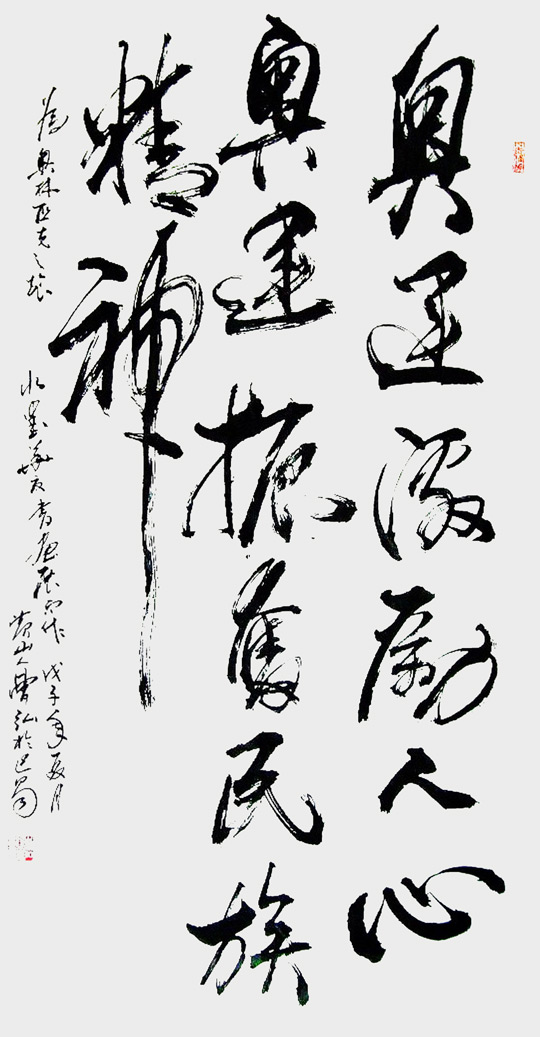 奥运激励人心
奥运振奋民族
精神
为奥林匹克之旅
水墨缘友书画展而作 戊子年夏月
黄山人曹弘於巴蜀